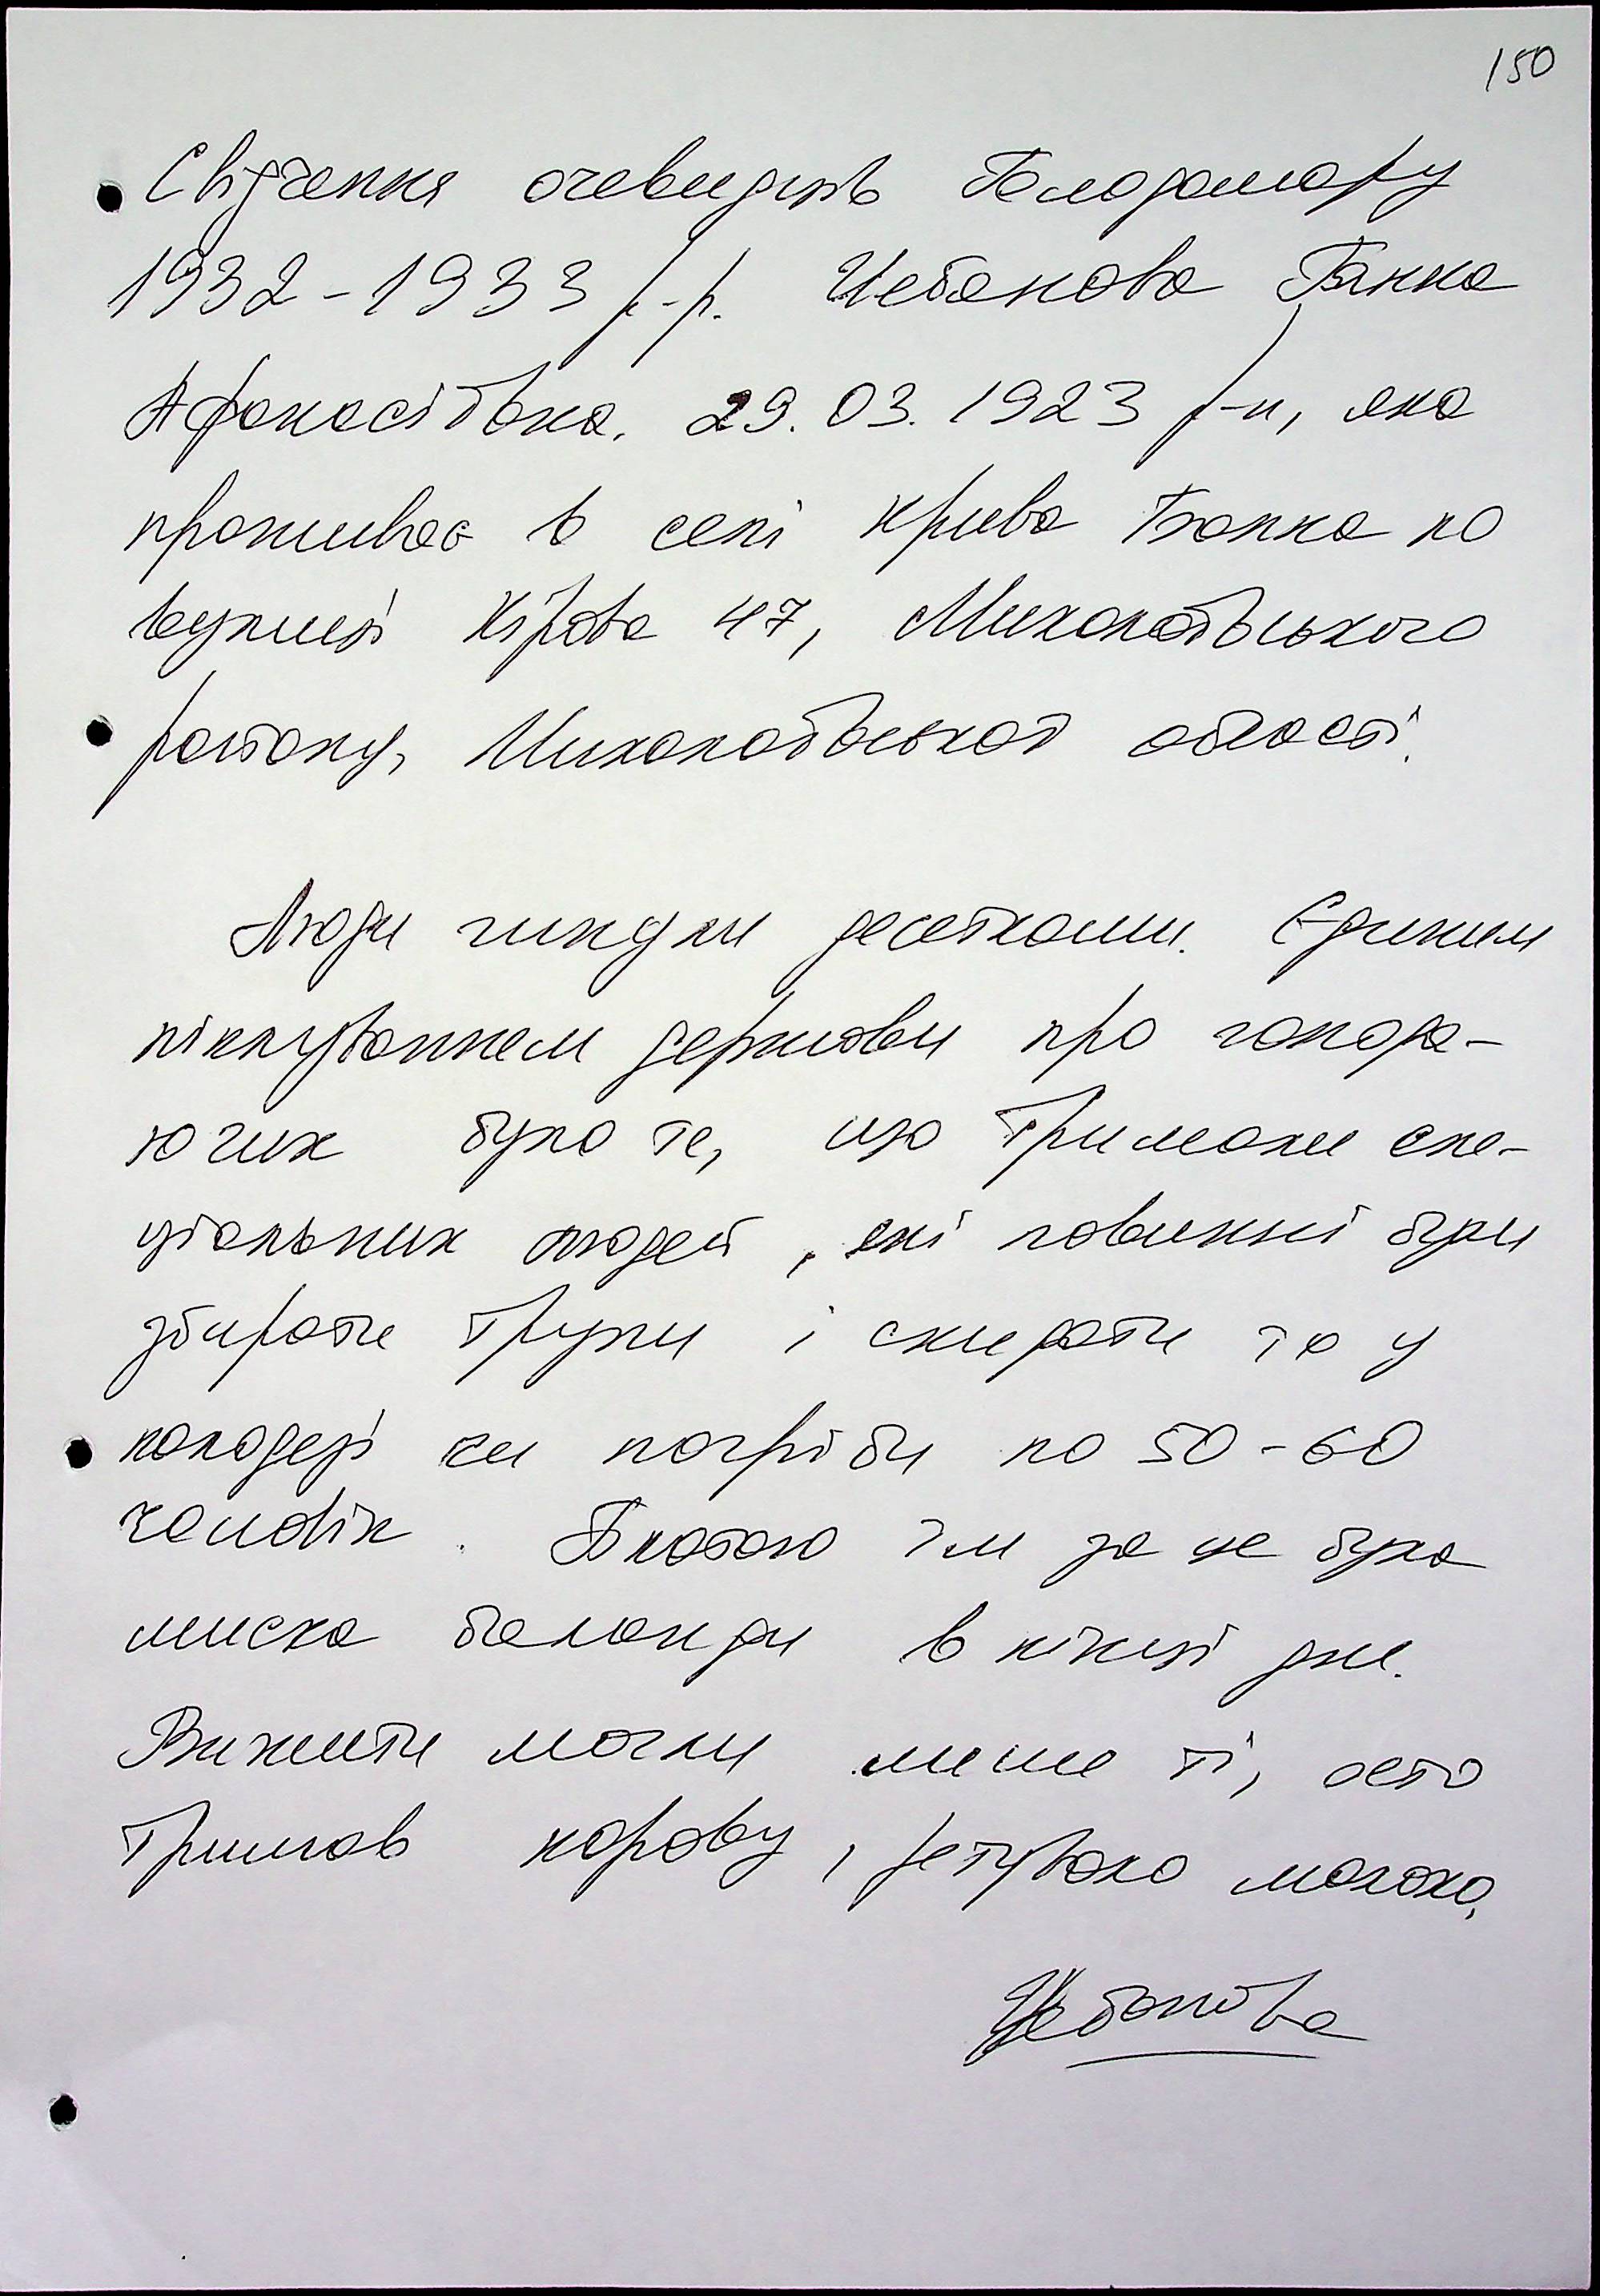 150
Свідчення очевидців Голодомору
1932-1933 р.-р. Чебанова Ганна
Афанасіївна. 29.03.1923 р-н, яка
проживає в селі Крива Балка по
вулиці Кірова 47, Миколаївського
району, Миколаївської області.
Люди гинули десятками. Єдиним
піклуванням держави про голода-
ючих було те, що тримали спе-
ціальних людей, які повинні були
збирати трупи і скидати їх у
колодязі чи погріби по 50-60
чоловік. Платою їм за це була
миска баланди в кінці дня.
Вижити могли лише ті, хто
тримав корову, рятувало молоко,
Чебанова